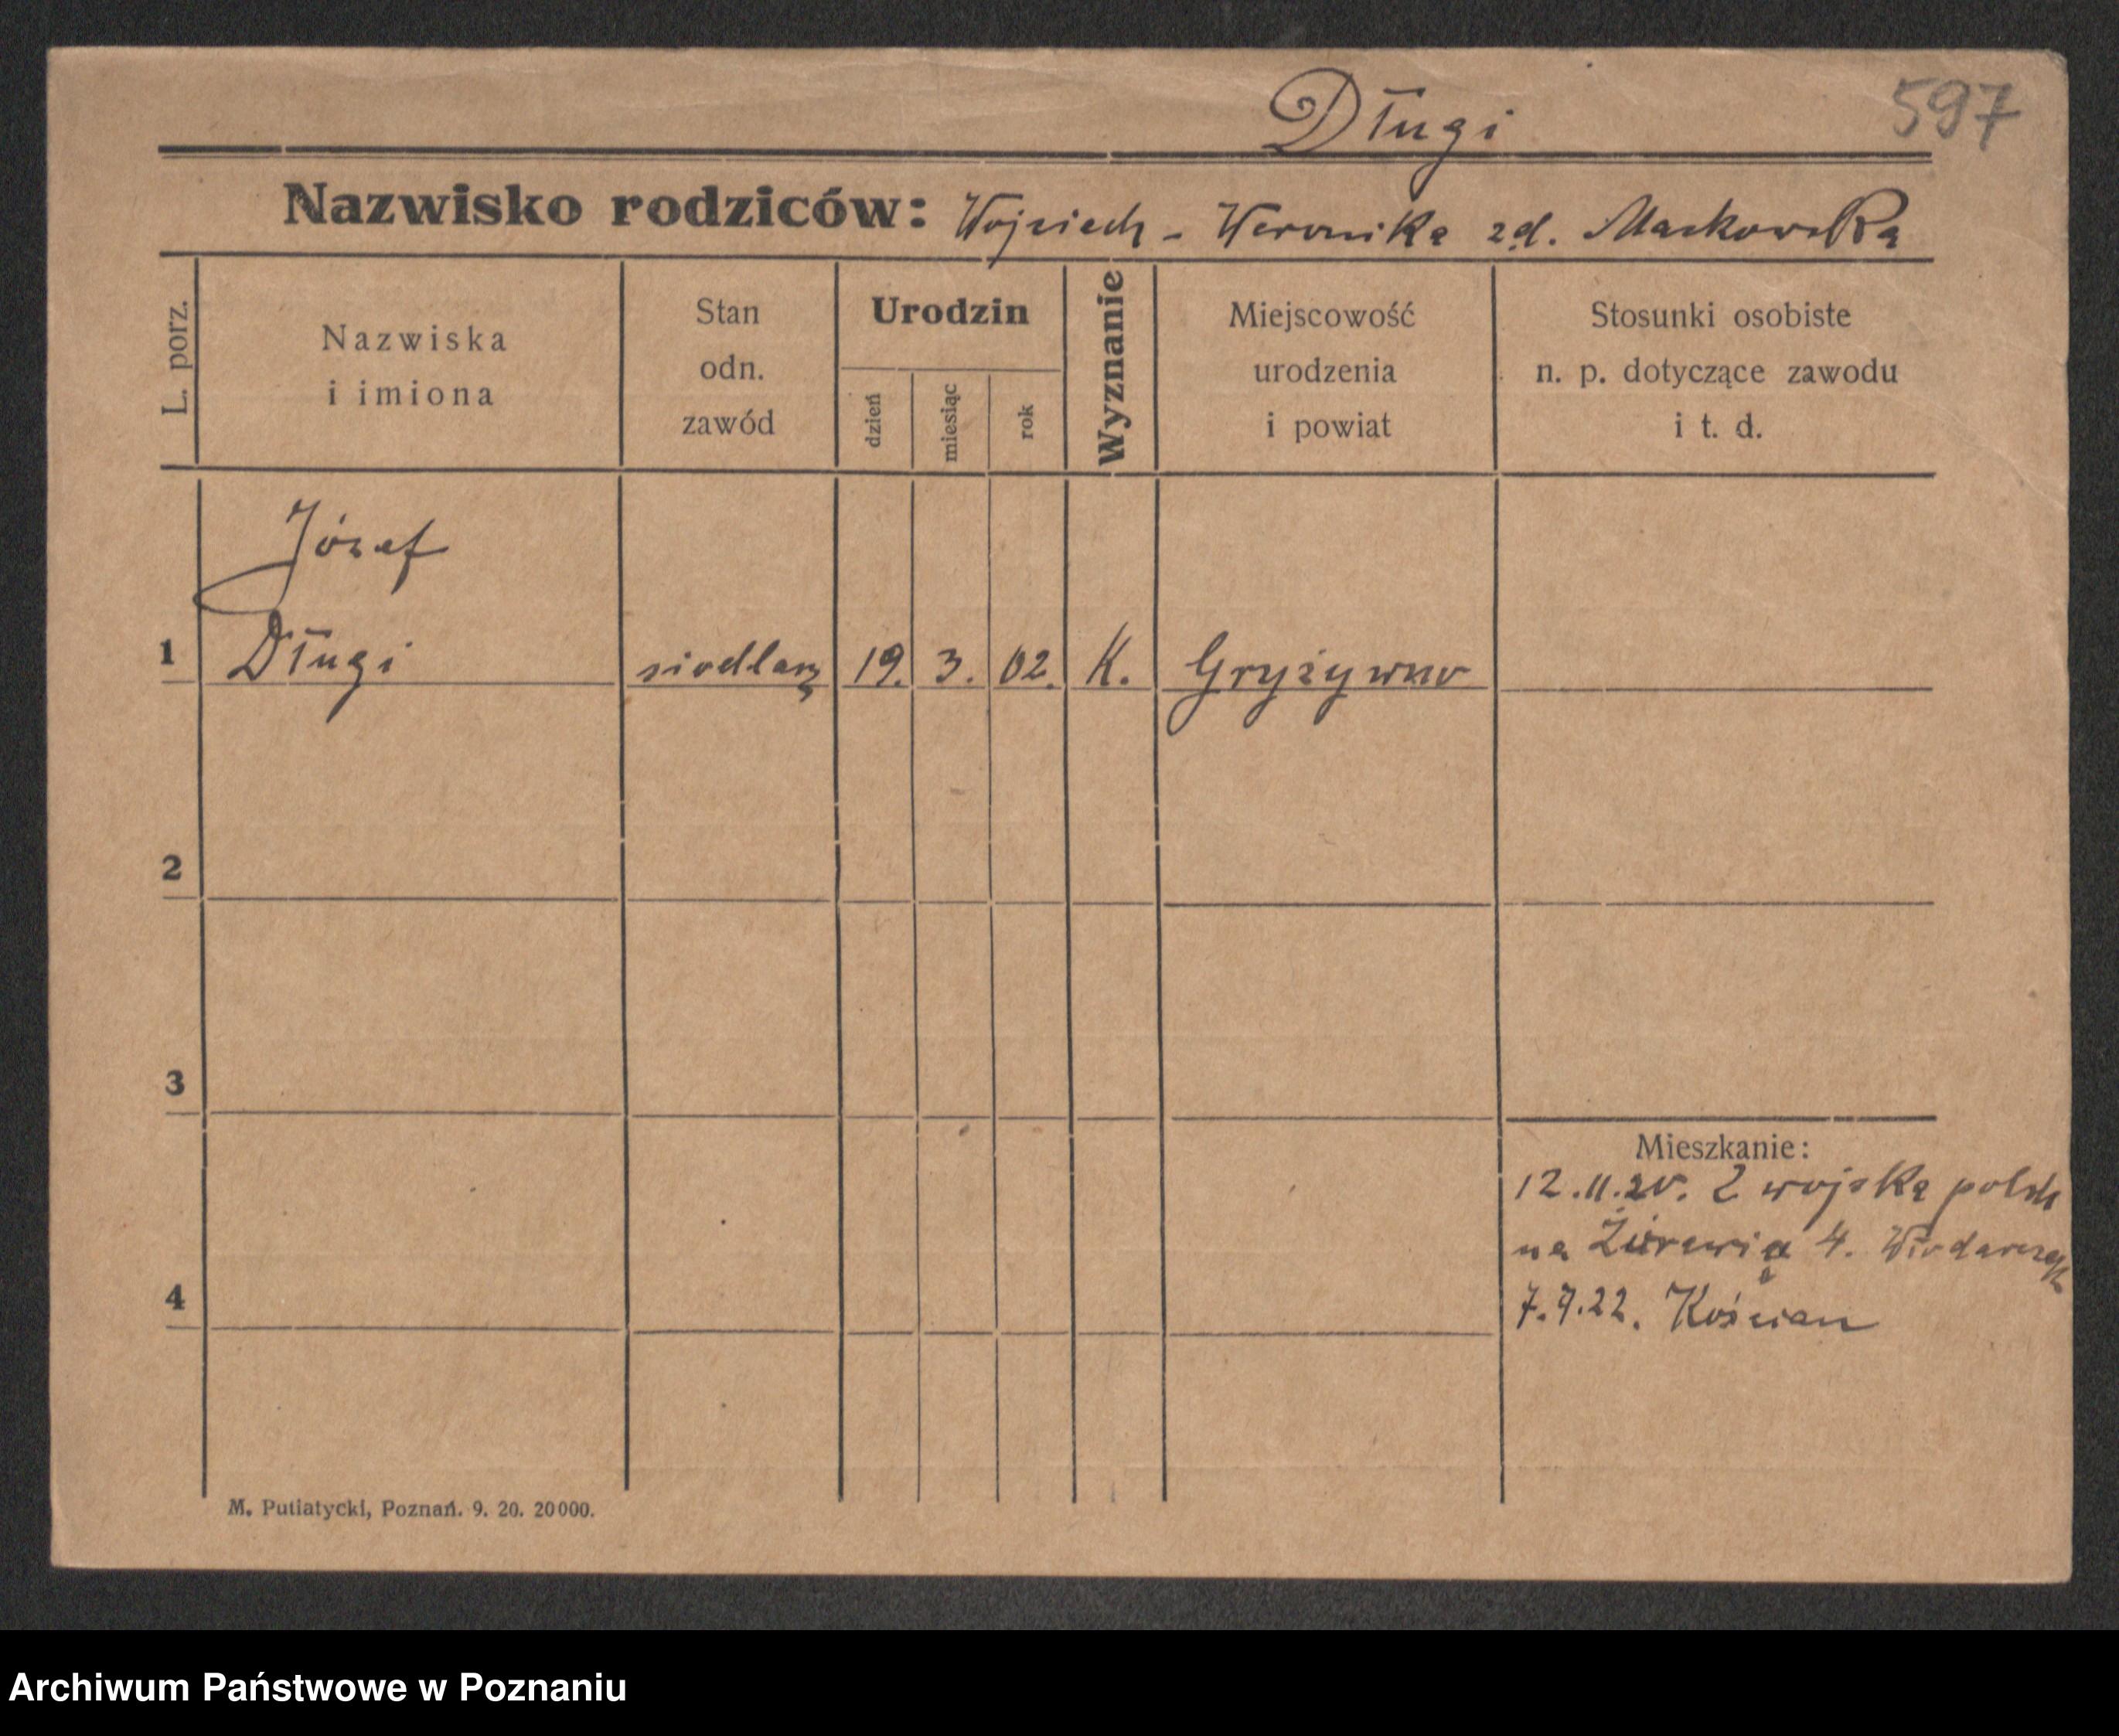 Długi
597
Nazwisko rodziców: Wojciech - Weronika zd. Maćkowska
L. porz.
Nazwiska
i imiona
Stan
odn.
zawód
Urodzin
dzień
miesiąc
rok
Wyznanie
Miejscowość
urodzenia
i powiat
Stosunki osobiste
n. p. dotyczące zawodu
i t. d.
Józef
1 Długi siodlarz 19. 3. 02. K. Gryżywno
2
3
4
Mieszkanie:
12.11.20. Z wojska polsk
na Żórawią 4.
7.7.22. Kościan
M. Putiatycki, Poznań. 9. 20. 20000.
Archiwum Państwowe w Poznaniu